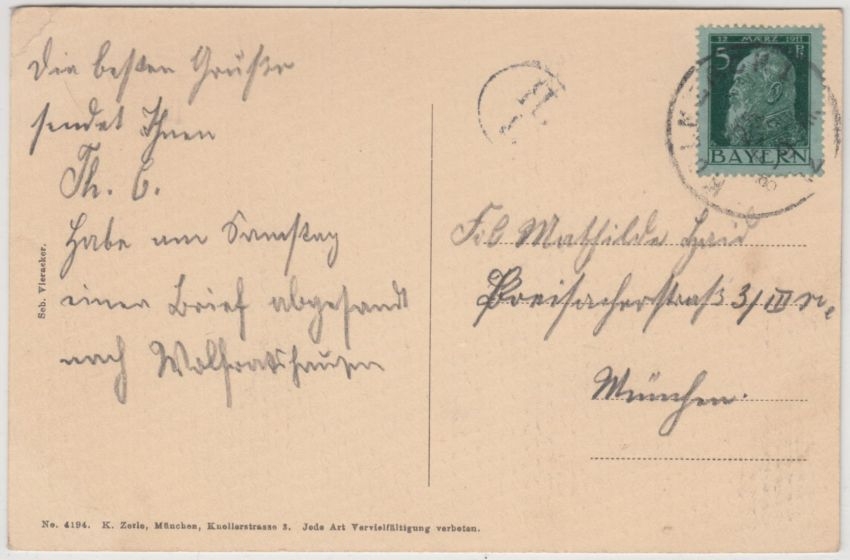 Die besten Grüße
sendet Ihnen
Th. E.
Habe am Samstag
einen Brief abgesandt
nach Wolfratshausen
Seb. Vieracker.
12 MÆRZ 1911
5 Pf
BAYERN
Mathilde
Breisacherstraß 3/III
München.
No. 4194. K. Zerle, München, Knollerstrasse 3. Jede Art Vervielfältigung verboten.